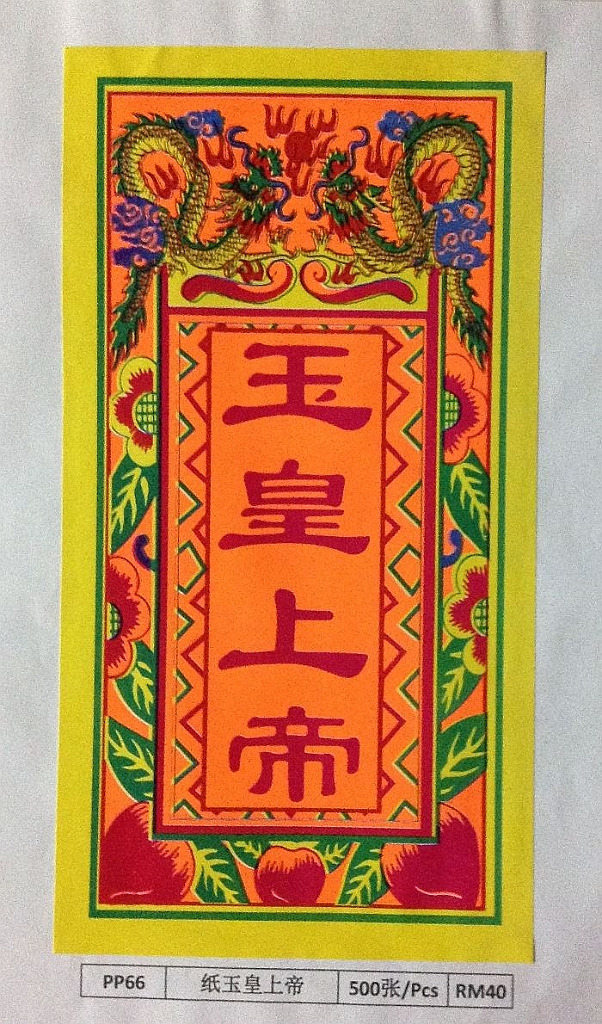 玉皇上帝
PP66 纸玉皇上帝 500张/Pcs RM40